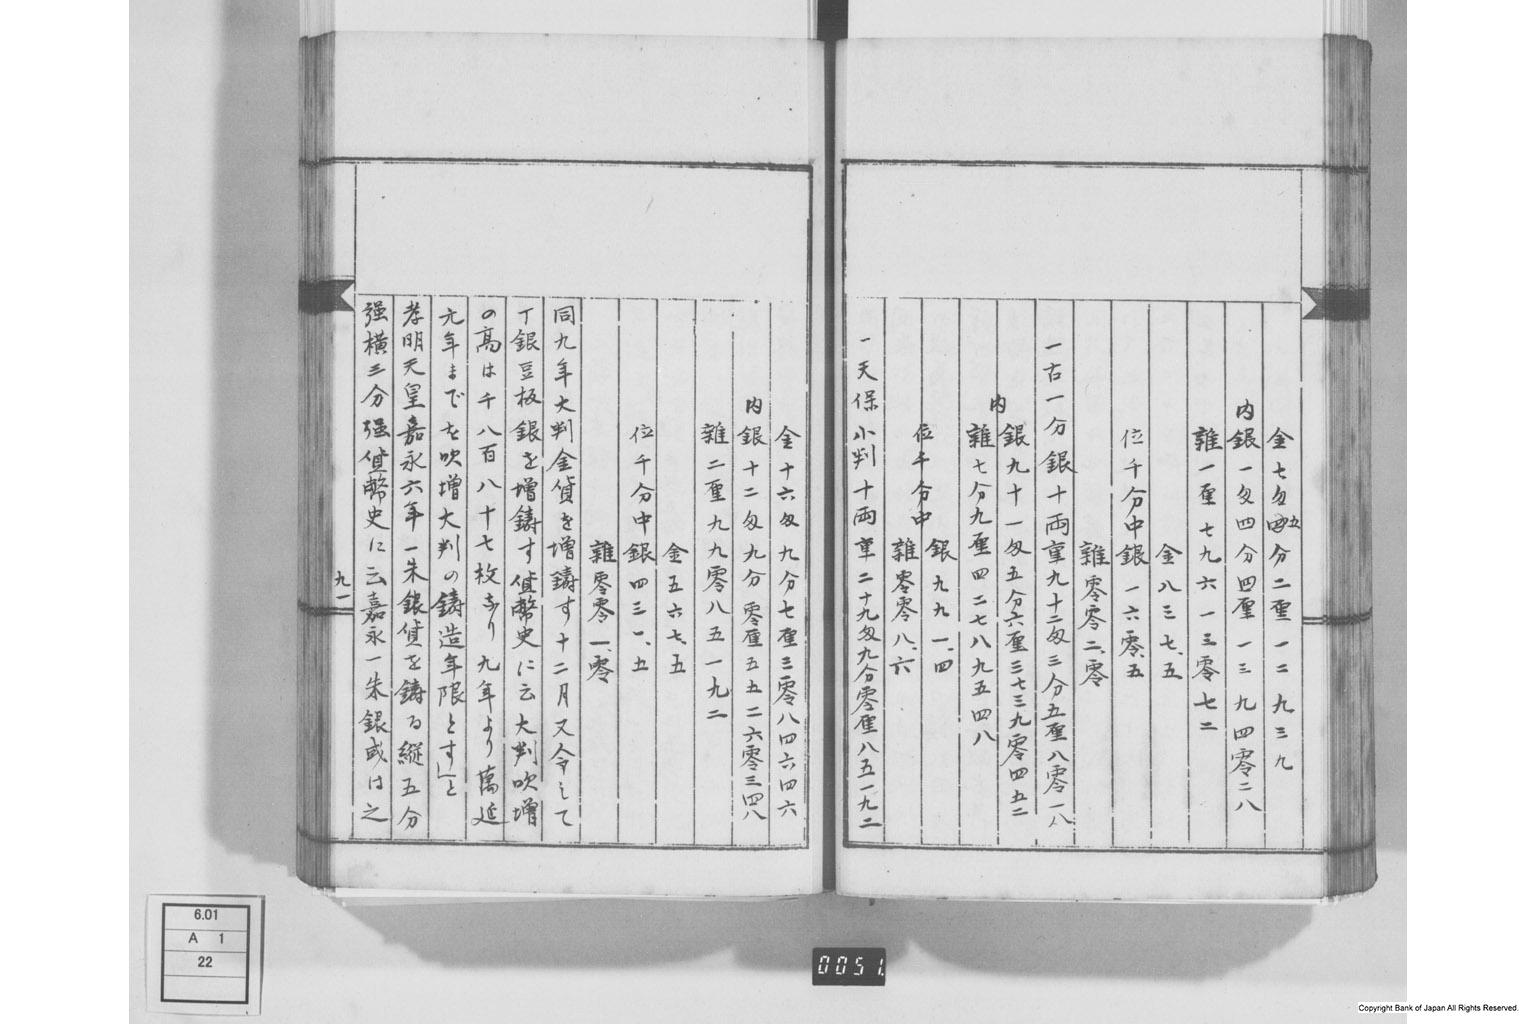 金七匁四五分二厘一二九三九
内
銀一匁四分四厘一三九四零二八
雑一厘七九六一三零七二
金八三七、五
位千分中銀一六零、五
雑零零二、零
一古一分銀十両重九十二匁三分五厘八零一八
内
銀九十一匁五分六厘三七三九零四五二
雑七分九厘四二七八九五四八
銀九九一、四
位千分中
雑零零八、六
一天保小判十両重二十九匁九分零厘八五一九二
金十六匁九分七厘三零八四六四六
内
銀十二匁九分零厘五五二六零三四八
雑二厘九九零八五一九二
金五六七、五
位千分中銀四三一、五
雑零零一、零
同九年大判金貨を増鋳す十二月又令して
丁銀豆板銀を増鋳す貨幣史に云大判吹増
の高は千八百八十七枚なり九年より萬延
元年までを吹増大判の鋳造年限とす」と
孝明天皇嘉永六年一朱銀貨を鋳る縦五分
强横三分强貨幣史に云嘉永一朱銀或は之
九一
6.01
A 1
22
0051.
Copyright Bank of Japan All Rights Reserved.